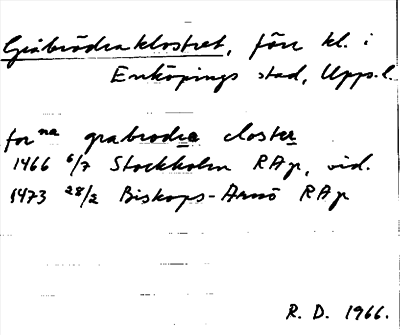 Gråbrödraklostret, förr kl. i
Enköpings stad, Upps.l.
for ͫͣ grabrodra closter
1466 6/7 Stockholm RAp, vid.
1473 28/2 Biskops-Arnö RAp
R. D. 1966.